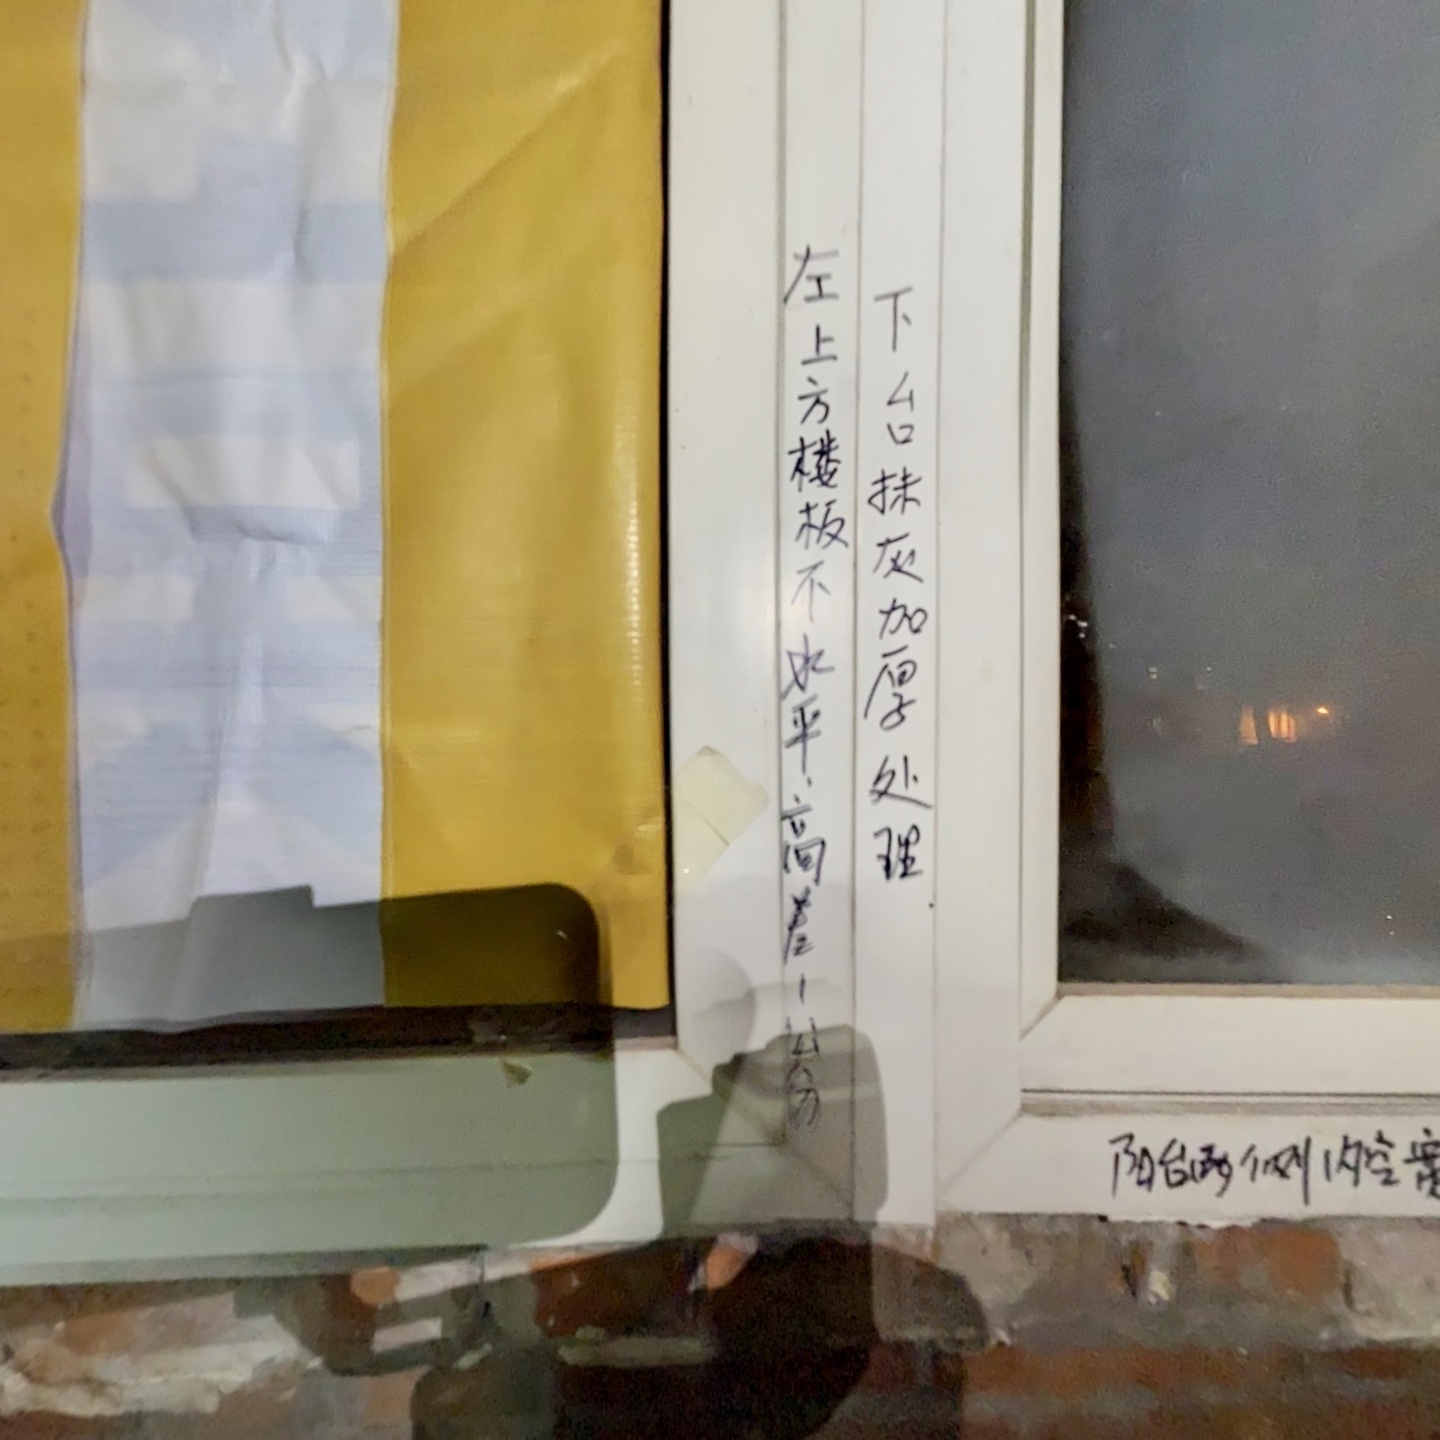 左上方楼板不水平、高差1公分
下台抹灰加厚处理
阳台两侧内空需